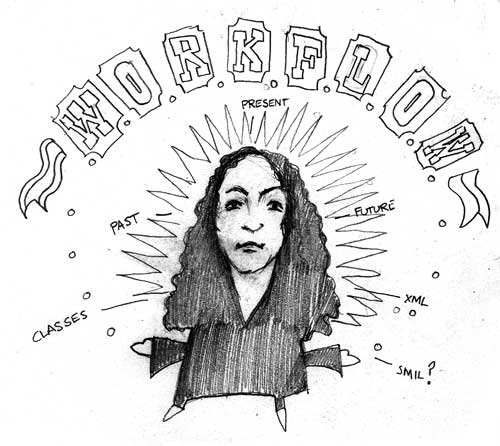 W.O.R.K.F.L.O.W
PRESENT
PAST
FUTURE
CLASSES
XML
SMIL?